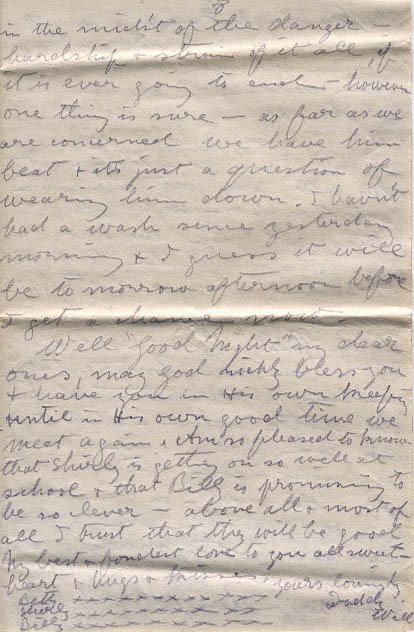 3
in the midst of the danger -
hardship & strain of it all, if
it is ever going to end - however
one thing is sure - as far as we
are concerned we have him
beat & it's just a question of
wearing him down. I havn't
had a wash since yesterday
morning & I guess it will
be tomorrow afternoon before
I get a chance now.
Well "Good Night" my dear
ones, may God richly bless you
& have you in His own keeping
until in His own good time we
meet again. Am so pleased to know
that Shirly is getting on so well at
school & that Bill is promising to
be so clever - above all & most of
all I trust that they will be good
My best & fondest love to you all sweet-
heart & hugs & kisses, yours lovingly,
Betty x x x x x x x x x Daddy
Shirly x x x x x x x x x Will
Billy x x x x x x x x x